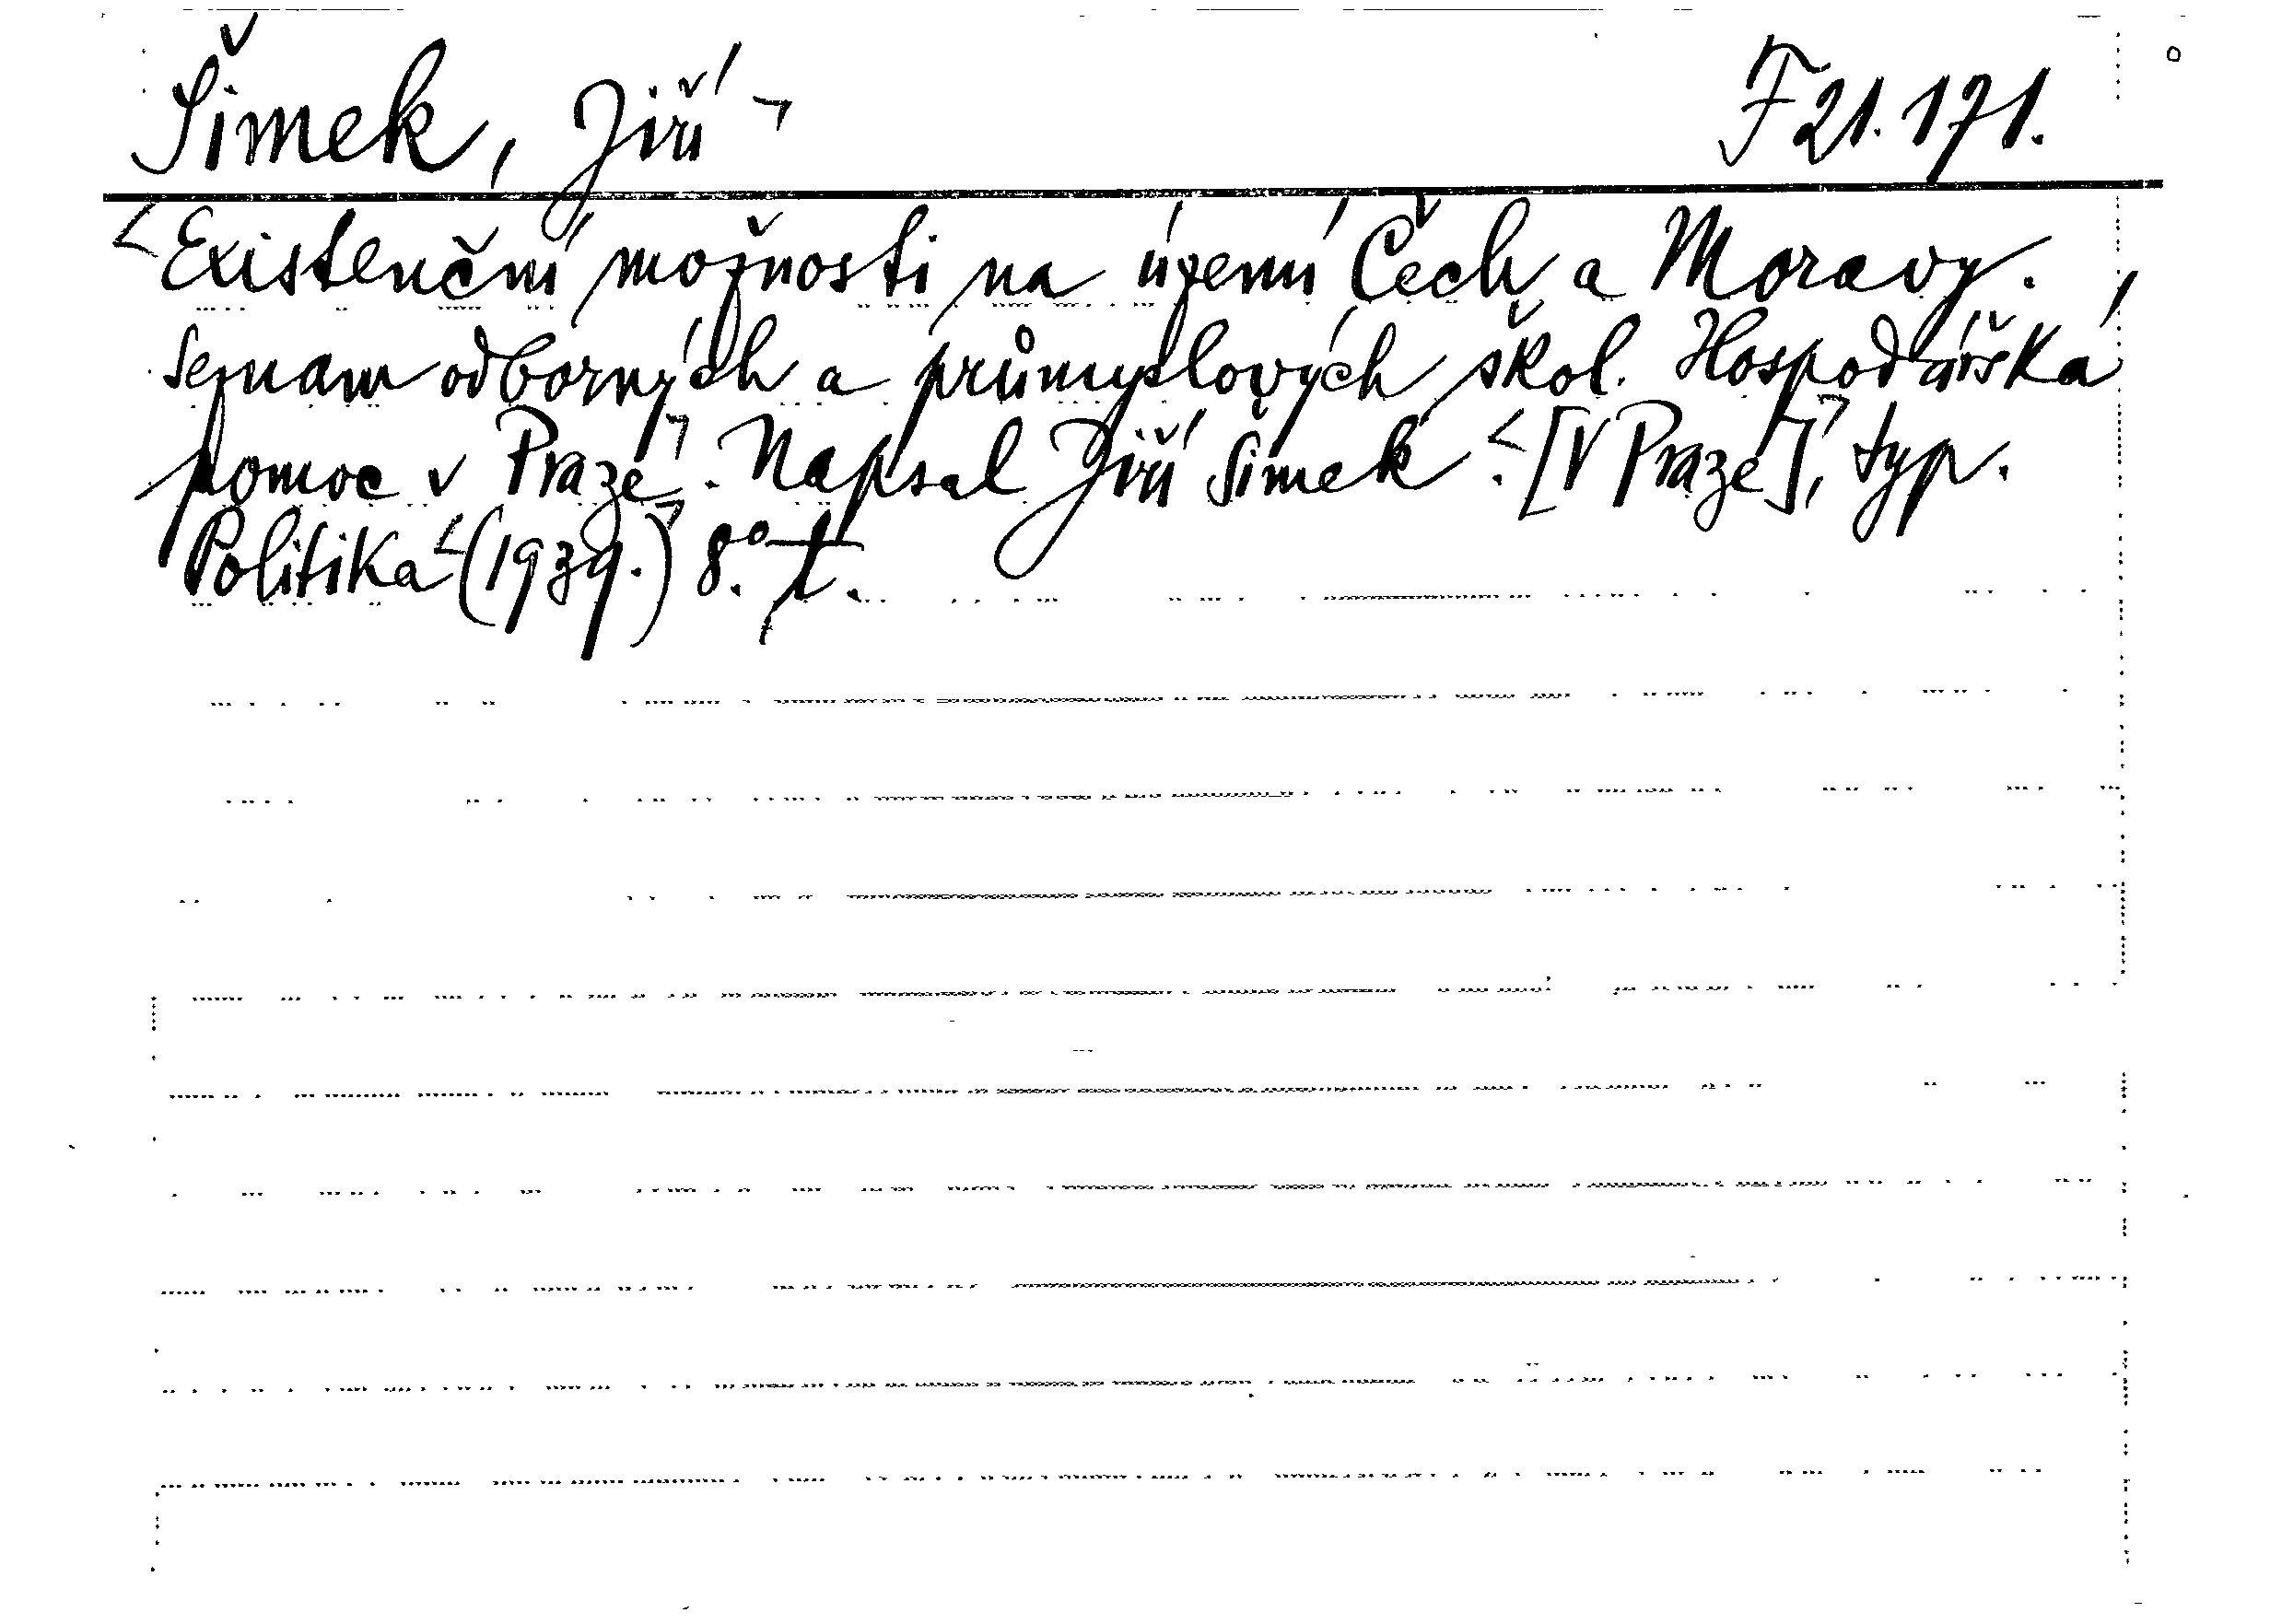 Šimek, Jiří ¬ F 21.171.
<Existenční možnosti na území Čech a Moravy.
Seznam odborných a průmyslových škol. Hospodářská
pomoc v Praze¬. Napsal Jiří Šimek<. [V Praze]¬, typ.
Politika<(1939.)¬ 8.° t.